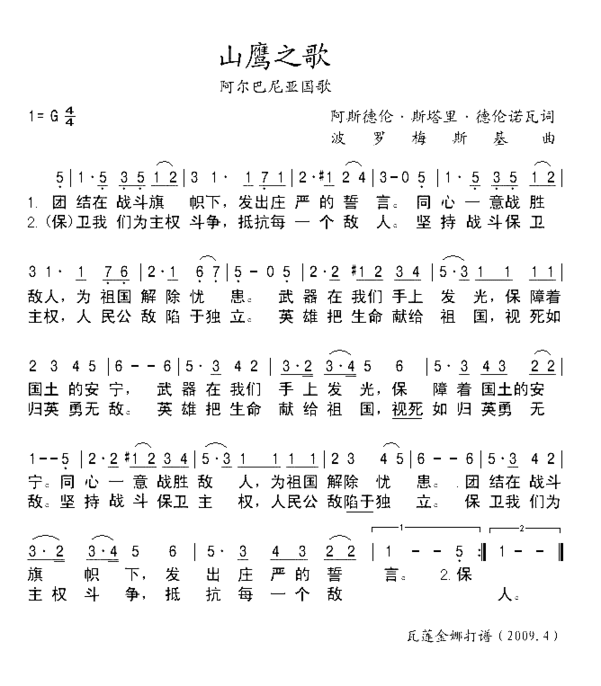 山鹰之歌
阿尔巴尼亚国歌
1=G 4/4
阿斯德伦·斯塔里·德伦诺瓦词
波罗梅斯基曲
5|1·5 35 12|31·1 71|2·#1 24|3-05|1·5 35 12|
1.团结在战斗旗帜下,发出庄严的誓言。同心一意战胜
2.(保)卫我们为主权斗争,抵抗每一个敌人。坚持战斗保卫
31·1 76|2·1 67|5-05|2·2 #12 34|5·31 11|
敌人,为祖国解除忧患。武器在我们手上发光,保障着
主权,人民公敌陷于独立。英雄把生命献给祖国,视死如
23 45|6--6|5·342|3·2 3·45 6|5·31 12|
国土的安宁,武器在我们手上发光,保障着国土的安
归英勇无敌。英雄把生命献给祖国,视死如归英勇无
1--5|2·2 #12 34|5·31 11|23 45|6--6|5·342|
宁。同心一意战胜敌人,为祖国解除忧患。团结在战斗
敌。坚持战斗保卫主权,人民公敌陷于独立。保卫我们为
3·2 3·45 6|5·3 12 32|1-5:‖1--‖
旗帜下,发出庄严的誓言。2.保
主权斗争,抵抗每一个敌人。
瓦莲金娜打谱(2009.4)